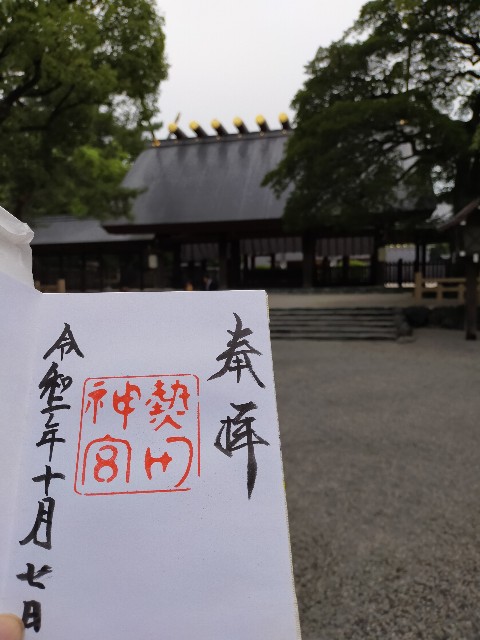 奉拝
熱田
神宮
令和二年十月七日